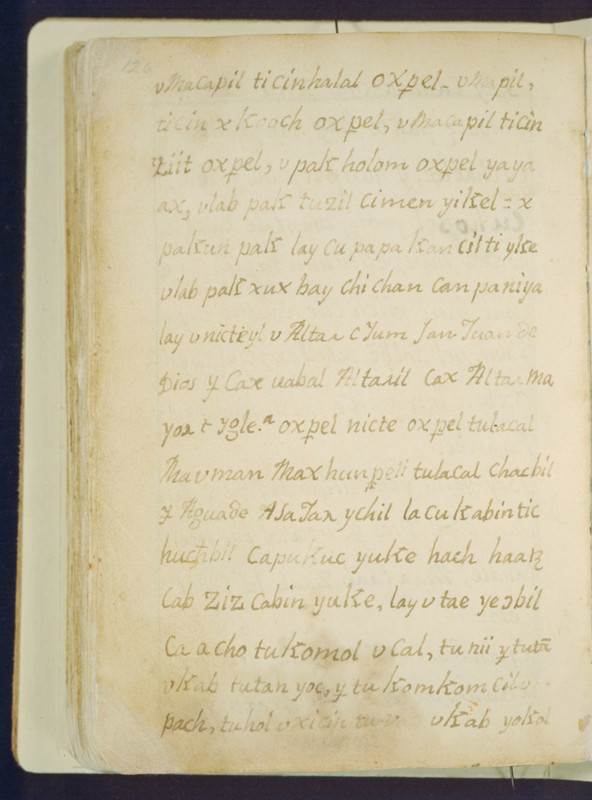 126
v Macapil ti cinhalal oxpel - v Mapil,
ticin x Kooch oxpel, v Macapil ticin
Ziit oxpel, v pak holom oxpel yaya
ax, vlab pak tuzil cimen yikel = x
pakun pak lay cu papa kan cilti yke
vlab pak xux bay chichan Can paniya
lay v nicteyl v Altar c Yum San Juan de
Dios y Cax uabal Altaril Cax Altar Ma
yor t Ygle.ª oxpel nicte oxpel tulacal
Ma v man Max hunpeli tulacal chacbil
y Aguade Asajar ychil la cu kabintic
huchbil Capukuc yuke hach haatz
Cab Ziz Cabin yuke, lay v tae yeɔbil
Ca a cho tu komol v Cal, tu nii y tutā
v kab tutan yoc, y tu komkom cil v
pach, tuhol v xicin v kab yokol